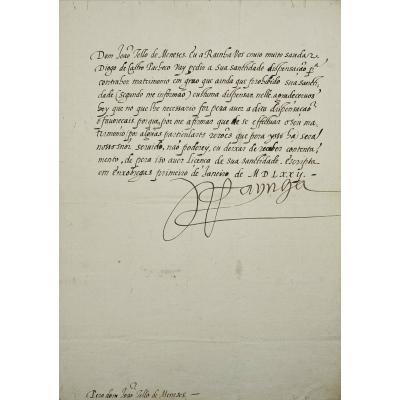 Dom João Tello de Meneses. Eu a Rainha vos envio muito saudar
Diogo de Castro Pacheco vay pedir a sua santidade dispensação pª
contraher matrimonio em grao que ainda que prohibido sua santi,
dade (segundo me informão) custuma dispensar nelle. agradecervos
hey que no que lhe necessario for pera aver a dita dispensaçã
o favoreçais porque, por me afirmar que se effectuar o seu ma,
trimonio por algumas particulares rezões que pera ysso ha; será
nosso snor servido, não poderey, eu deixar de receber contenta,
mento, de pera isso aver licença de sua santidade. Escripta
em Enxobregas primeiro de Janeiro de M D LXXij —
Raynha
Pera dom João Tello de Meneses. —